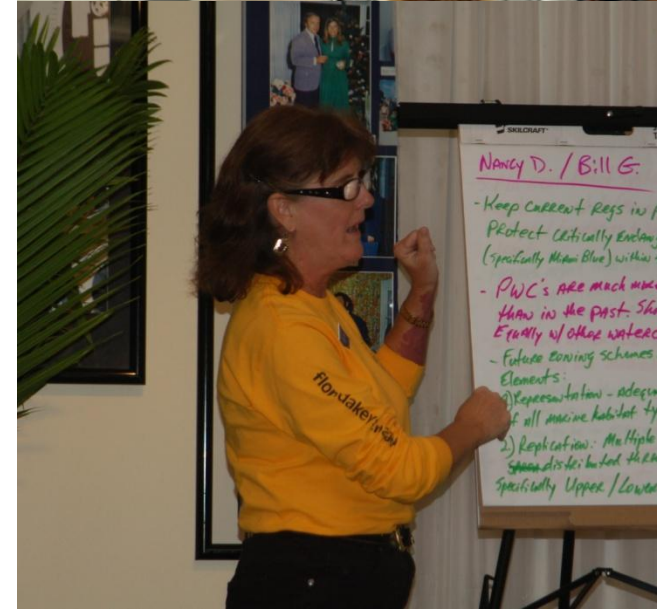 SKILCRAFT
NANCY D. / Bill G.
- Keep current regs in
Protect critically
(specifically Miami Blue) within
- PWC's are much
than in the past.
Equally w/ other
- Future zoning schemes
Elements:
1) Representation -
of all marine habitat
2) Replication: Multiple
distributed
Specifically Upper /